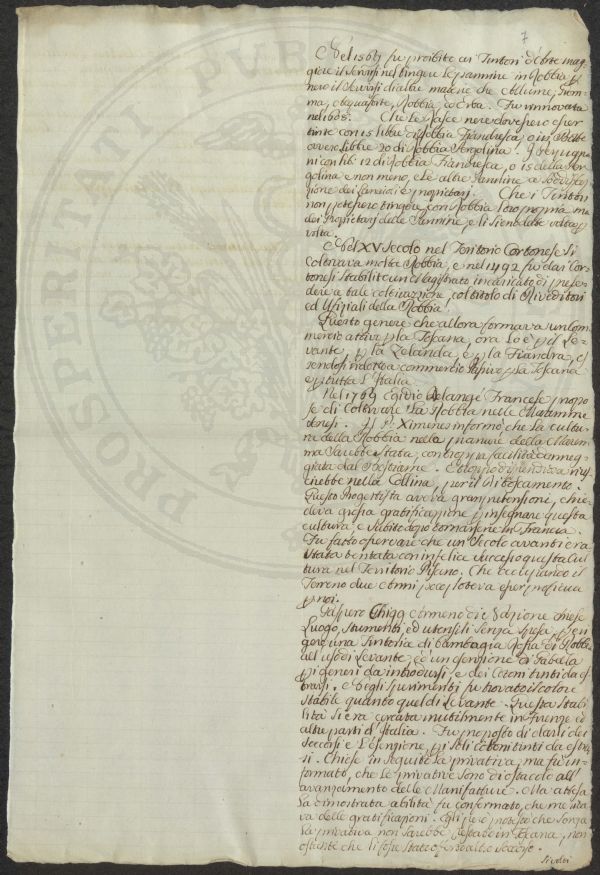 7
Nel 1589 fu proibito ai Tintori d'Arte mag-
giore il servirsi nel tingere le pannine in Robbia,
nero il servirsi d'altre materie che Allume, Gom-
ma, Robbia, ed erba. Fu rinnovata
nel 1605. Che le rasce nere dovessero esser
tinte con 15 libbre di Robbia Fiandresca, o
ovvero libbre 20 di Robbia Vergolina.
ni con lib: 12 di Robbia Fiandresca, o 15 della Ver-
golina e non meno, e le altre Pannine a sodisfa-
zione dei Lanaioli e proprietarj. Che i Tintori
non potessero tingere con Robbia loro propria ma
dei Proprietarj delle Pannine, e li sieno date volta p
volta.
Nel XV Secolo nel Territorio Cortonese si
coltivava molta Robbia, e nel 1492 fu dai Cor-
tonesi stabilito un Magistrato incaricato di presie-
dere a tale coltivazione, col titolo di Riveditori
ed Ufiziali della Robbia.
Questo genere che allora formava un Com-
mercio attivo p la Toscana, ora lo è p il Le-
vante, p la Zelanda, e p la Fiandra, es-
sendosi ridotto a commercio passivo p la Toscana
e p tutta l'Italia.
Nel 1769 Egidio Delangé Francese propo-
se di coltivare la Robbia nelle Maremme
Il P. Ximenes informò, che la cultu-
ra della Robbia nelle pianure della Marem-
ma sarebbe stata, con troppa facilità danneg-
giata dal Bestiame.
cirebbe nella Collina, per il Disboscamento.
Questo Progettista aveva gran pretensioni, chie-
deva grossa gratificazione p insegnare questa
cultura, e subito dopo tornarsene in Francia.
Fu fatto osservare che un secolo avanti era
stata tentata con infelice successo questa cul-
tura nel Territorio Pisano. Che occupando il
Terreno due o tre anni, poco poteva esser proficua
p noi.
Gaspero Chigg Armeno di Nazione chiese
Luogo, stumenti, ed utensili senza spesa, p eri-
gere una Tintoria di bambagia rossa di Robbia
all'uso di Levante, ed un'esenzione di Gabella
p i generi da introdursi, e dei Cotoni tinti da es-
trarsi. E degli sperimenti fu trovato il colore
stabile quanto quel di Levante. Questa stabi-
lità si era cercata inutilmente in Firenze ed
altre parti d'Italia. Fu proposto di darli dei
soccorsi e l'esenzione, p i soli cotoni tinti da estrar-
si. Chiese in seguito la privativa, ma fu in-
formato, che le privative sono di ostacolo all'
avanzamento delle Manifatture. Ma attesa
la dimostrata abilità fu confermato, che merita-
va delle gratificazioni. Egli però protestò che senza
la privativa non sarebbe restato in Toscana, non
ostante che li fosse stato offerto altro soccorso.